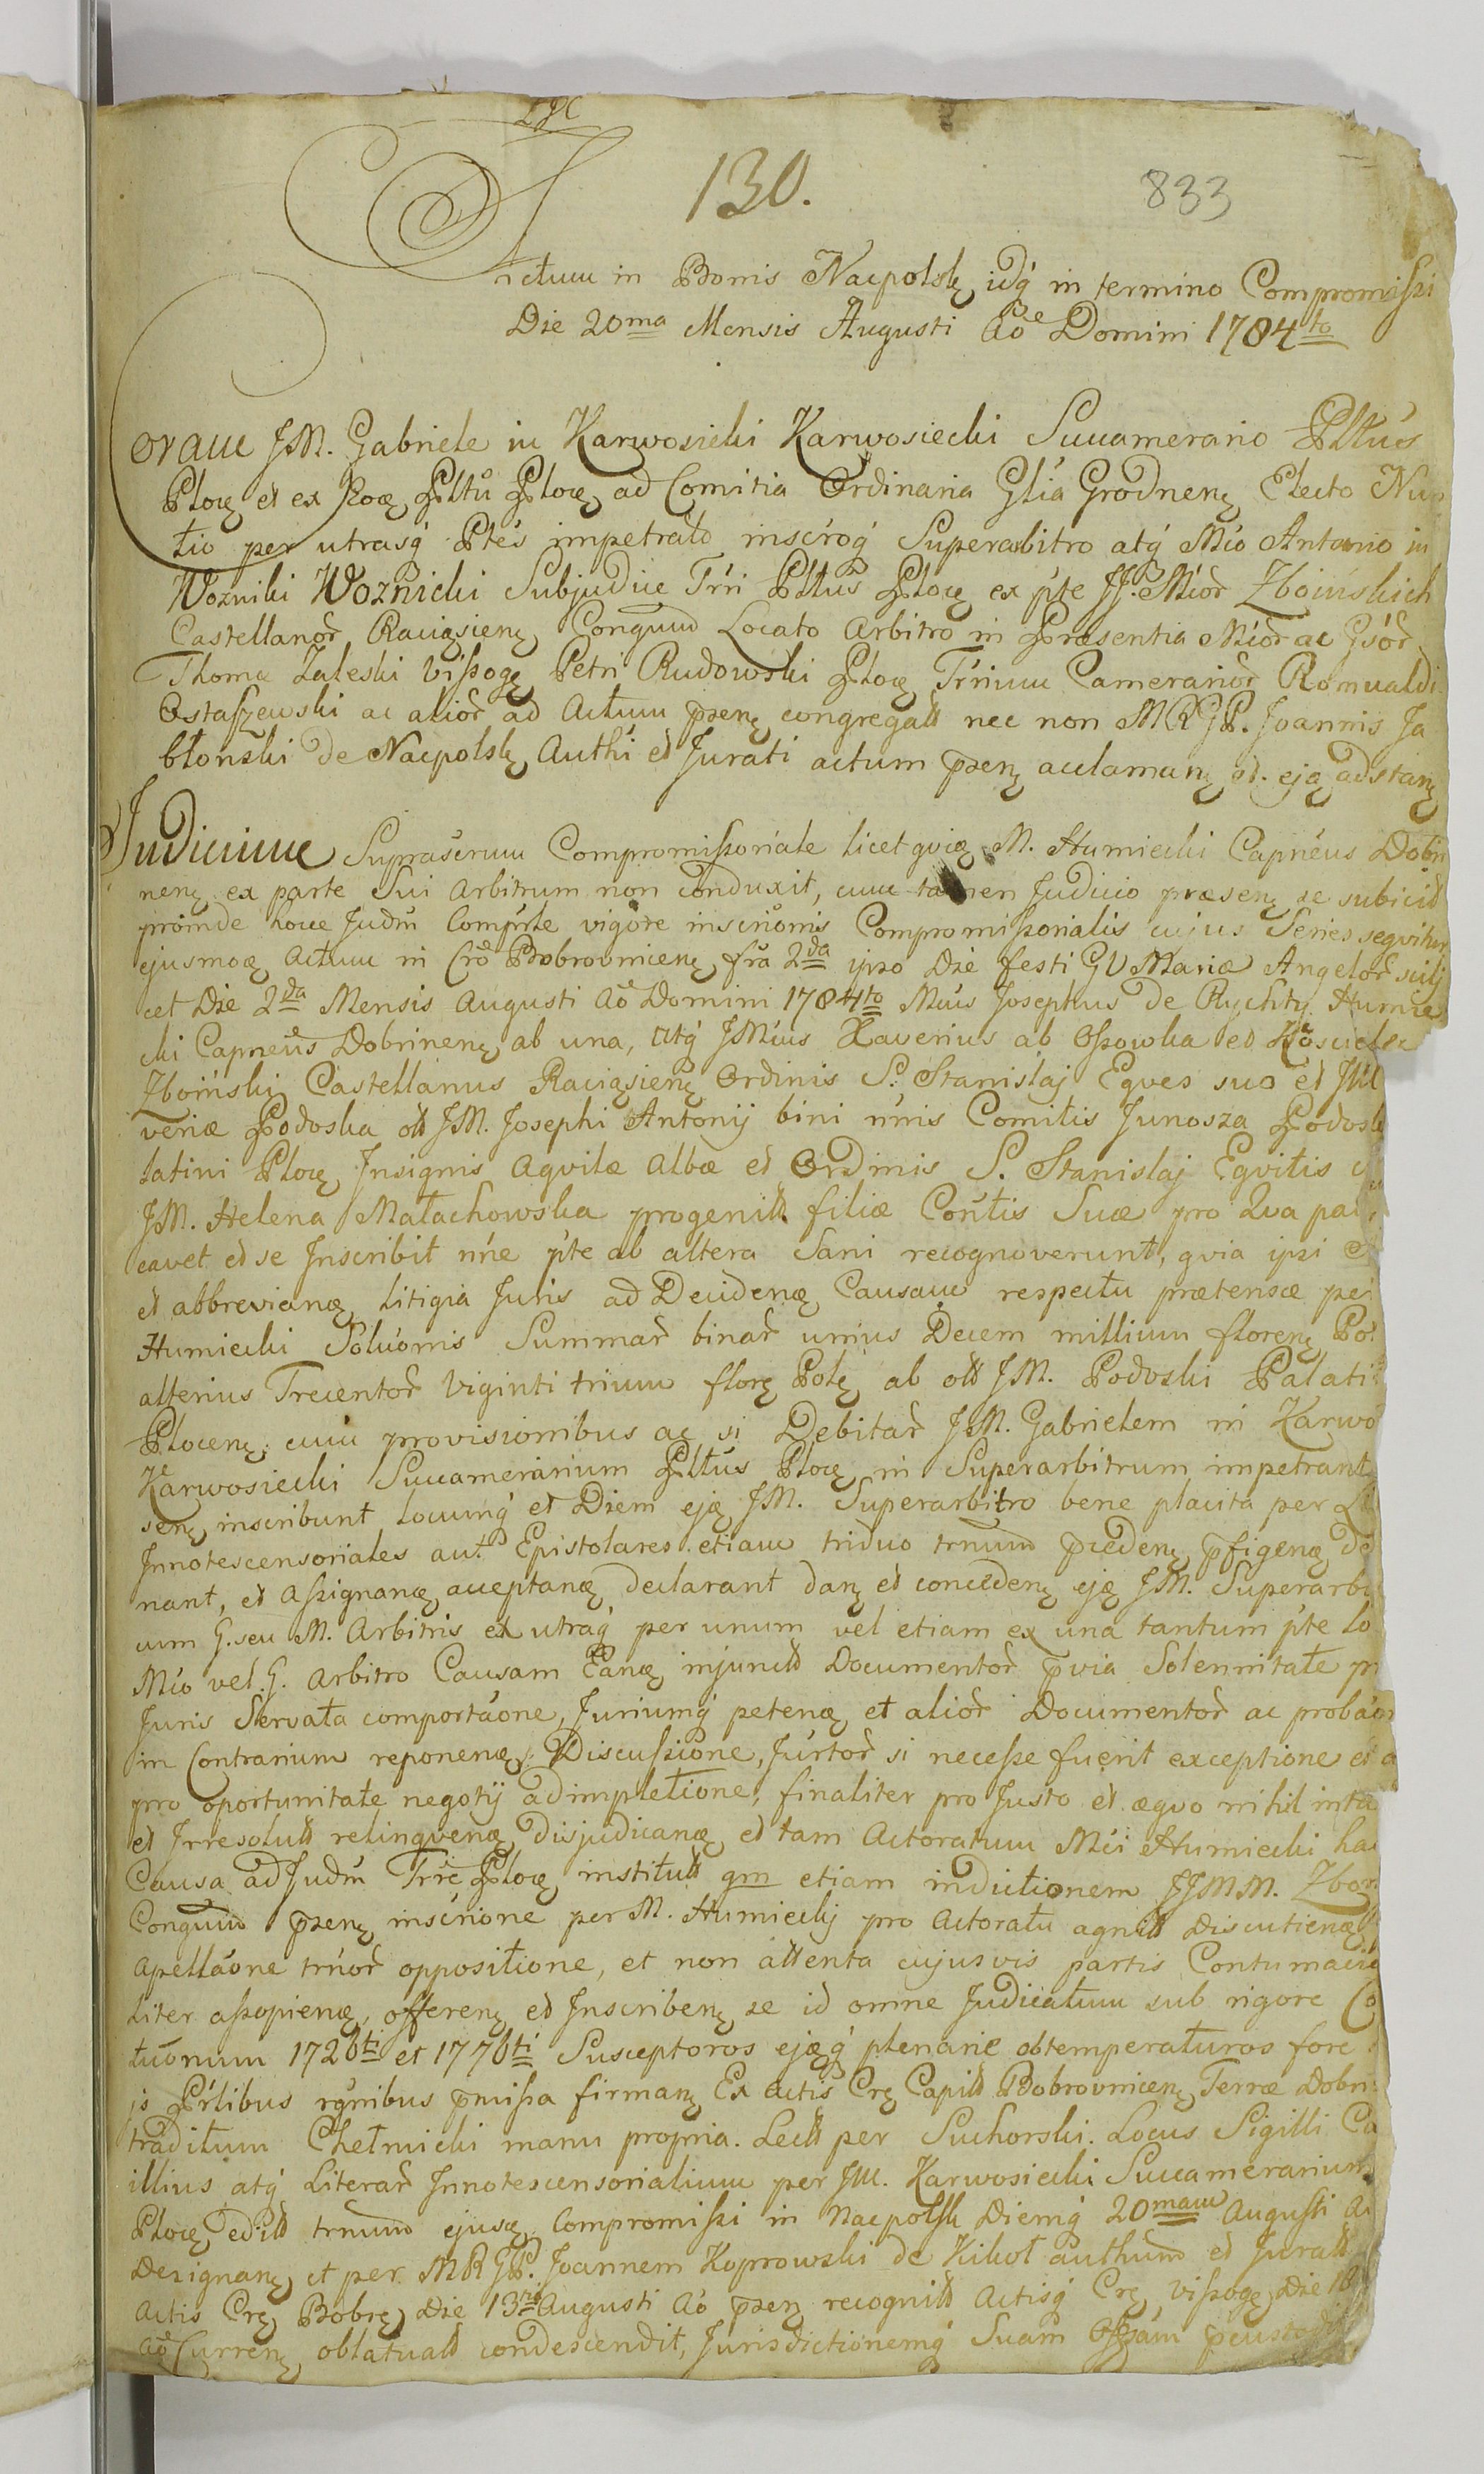 130.
833
Actum in Bonis Nacpolskę idq́ in termino Compromissi
Die 20ma Mensis Augusti Aõe Domini 1784to
Coram JM. Gabriele in Karwosieki Karwosiecki Succamerario Pltús
Plocę et ex Pltu Plocę ad Comitia Ordinaria Glia Grodnenę Electo Nun
tio per utrasq́ Ptés impetrato inscroq́ Superarbitro atq́ Mío Antonio in
Wozniki Woznicki Subjudice Trri Pltus Plocę ex p̃te JJ. Mior̃ Zboinskich
Castellanor̃ Raciąsienę Congũm Locato Arbitro in Præsentia Mior̃ ac Gsór̃
Thomæ Zaleski Vissogę Petri Rudowski Plocę Trrium Camerarior̃ Romualdi
Ostaszewski ac alior̃ ad Actum p̃senę congregatt nec non MRGP. Joannis Ja
błonski de Nacpolskę Authi et Jurati actum p̃senę acclamanę et ejæ adstanę
Judicium Suprascrum Compromissoriale licet M. Humiecki Capnéus Dobri
nenę ex parte Sui Arbitrum non conduxit, cum tamen Judicio præsenę se subicit
proinde hocce Judm̃ Comp̃rle vigore inscriõnis Compromissorialis cujus Series seqvitur
ejusmoę Actum in Crõ Bobrovnicenę fra 2da ipso Die festi GV Mariæ Angelor̃ scili
cet Die 2da Mensis Augusti Aõ Domini 1784to Mius Josephus de Rychty Humie
cki Capneús Dobrinenę ab una, Atq́ JMius Xaverius ab Ossowka et Kosciele
Zboinski Castellanus Raciąsienę Ordinis S. Stanislaj Eqves suo et JM
veriæ Podoska ott JM. Josephi Antonij bini nris Comitis Junosza Podosk
latini Plocę Insignis Aqvilæ Albæ et Ordinis S. Stanislaj Eqvitis
JM. Helena Małachowska progenitt filiæ Cońtis Suæ pro Qva pa
cavet et se Inscribit nńe p̃te ab altera Sani recognoverunt, qvia ipsi
et abbrevianę litigia Juris ad Decidenę Causam respectu prætensæ per
Humiecki Soluõnis Summar̃ binar̃ unius Decem millium florenę Pol
alterius Trecentor̃ Viginti trium florę Polę ab ott JM. Podoski Palati
Plocenę cum provisionibus ac si Debitar̃ JM. Gabrielem in Karwo
Karwosiecki Succamerarium Pltus Plocę in Superarbitrum impetrant
senę inscribunt locumq́ et Diem ejæ JM. Superarbitro bene placita per Li
Innotescensoriales aut Epistolares etiam triduo trnum p̃cedenę p̃figenę de
nant, et Assignanę acceptanę declarant danę et concedenę ejæ JM. Superarbi
cum G. seu M. Arbitris ex utraq́ per unum vel etiam ex una tantum p̃te lo
Mio vel G. Arbitro Causam injunctt Documentor̃ p̃via Solennitate
Juris Servata comportaõne, Juriumq́ petenę et alior̃ Documentor̃ ac probaõn
in Contrarium reponenę Discussione, Jurtor̃ si necesse fuerit exceptione et
pro oportunitate negotij adimpletione, finaliter pro Justo et æqvo nihil inta
et Irresolutt relinqvenę disjudicanę et tam Actoratum Mii Humiecki ha
Causa ad Judm̃ Trre Plocę institutt qm etiam indictionem JJMM. Zboi
Congum p̃senę inscrione per M. Humieckij pro Actoratu agnitt discutienę
Apellaõne trńor̃ oppositione, et non attenta cujusvis partis Contumacia
liter assopienę, offerenę et Inscribenę se id omne Judicatum sub rigore Co
tuõnum 1726ti et 1776ti Susceptoros ejæq́ plenariè obtemperaturos fore
js Pŕtibus rgnibus p̃missa firmanę Ex Actis Crę Capitt Bobrovnicenę Terræ Dobri
traditum Chełmicki manu propria. Lectt per Suchorski. Locus Sigilli Ca
illius atq́ Literar̃ Innotescensorialium per JM. Karwosiecki Succamerarium
Plocę editt trnum ejusę Compromissi in Nacpolsk Diemq́ 20mam Augusti
Designanę et per MRGP. Joannem Koprowski de Kikoł authum et Juratt
Actis Crę Bobrę Die 13tia Augusti Aõ p̃senę recognitt Actisq́ Crę Vissogę Die
Aõ Currenę oblatuatt condescendit, Jurisdictionemq́ Suam